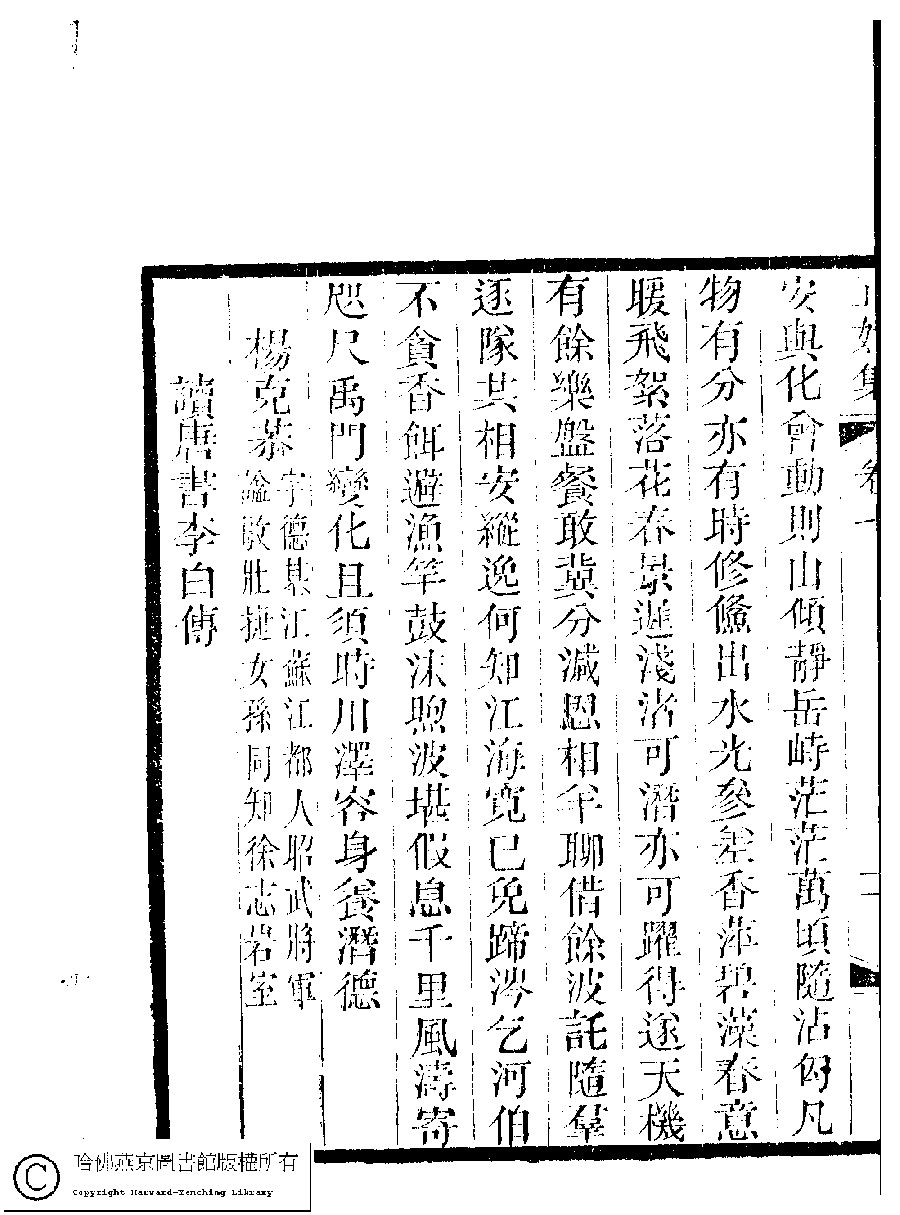 正始集 卷十 二
安與化會動則山傾靜岳峙茫茫萬頃隨沾匄凡
物有分亦有時修鱗出水光參差香萍碧藻春意
暖飛絮落花春景遲淺渚可潛亦可躍得遂天機
有餘樂盤餐敢冀分減恩相牟聊借餘波託隨羣
逐隊共相安縱逸何知江海寬已免蹄涔乞河伯
不貪香餌避漁竿鼓沫喣波堪假息千里風濤寄
咫尺禹門變化且須時川澤容身養潛德
楊克恭
字德基江蘇江都人昭武將軍
諡敏壯捷女孫同知徐志岩室
讀唐書李白傳
哈佛燕京圖書館版權所有
Copyright Harvard-Yenching Library